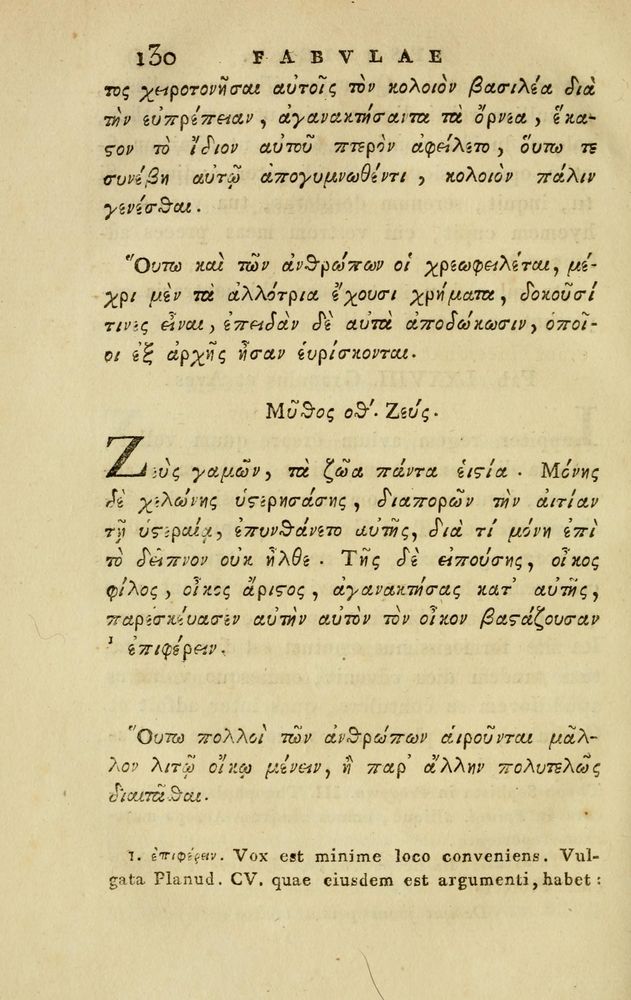 130 FABVLAE
τος χειροτονῆσαι αὐτοῖς τὸν κολοιὸν βασιλέα διὰ
τὴν εὐπρέπειαν, ἀγανακτήσαντα τὰ ὄρνεα, ἕκα-
ϛον τὸ ἴδιον αὐτοῦ πτερὸν ἀφείλετο, ὅυτω τε
συνέβη αὐτῷ ἀπογυμνωθέντι, κολοιὸν πάλιν
γενέσθαι.
Ὅυτω καὶ τῶν ἀνθρώπων οἱ χρεωφειλέται, μέ-
χρι μὲν τὰ ἀλλότρια ἔχουσι χρήματα, δοκοῦσί
τινὲς εἶναι, ἐπειδὰν δὲ αὐτὰ ἀποδώκωσιν, ὁποῖ-
οι ἐξ ἀρχῆς ἦσαν ἑυρίσκονται.
Μῦθος οθʹ. Ζεύς.
Ζεὺς γαμῶν, τὰ ζῶα πάντα ἑιϛία. Μόνης
δὲ χελώνης ὑϛερησάσης, διαπορῶν τὴν ἀιτίαν
τῇ ὑϛεραίᾳ, ἐπυνθάνετο αὐτῆς, διὰ τί μόνη ἐπὶ
τὸ δεῖπνον οὐκ ἦλθε. Τῆς δὲ ἐιπούσης, οἶκος
φίλος, οἶκος ἄριϛος, ἀγανακτήσας κατ' αὐτῆς,
παρεσκέυασεν αὐτὴν αὐτὸν τὸν οἶκον βαϛάζουσαν
¹ ἐπιφέρειν.
Ὅυτω πολλοὶ τῶν ἀνθρώπων ἁιροῦνται μᾶλ-
λον λιτῷ οἴκῳ μένειν, ἢ παρ' ἄλλην πολυτελῶς
διαιτᾶθαι.
1. ἐπιφέρειν. Vox est minime loco conveniens. Vul-
gata Planud. CV. quae eiusdem est argumenti, habet: